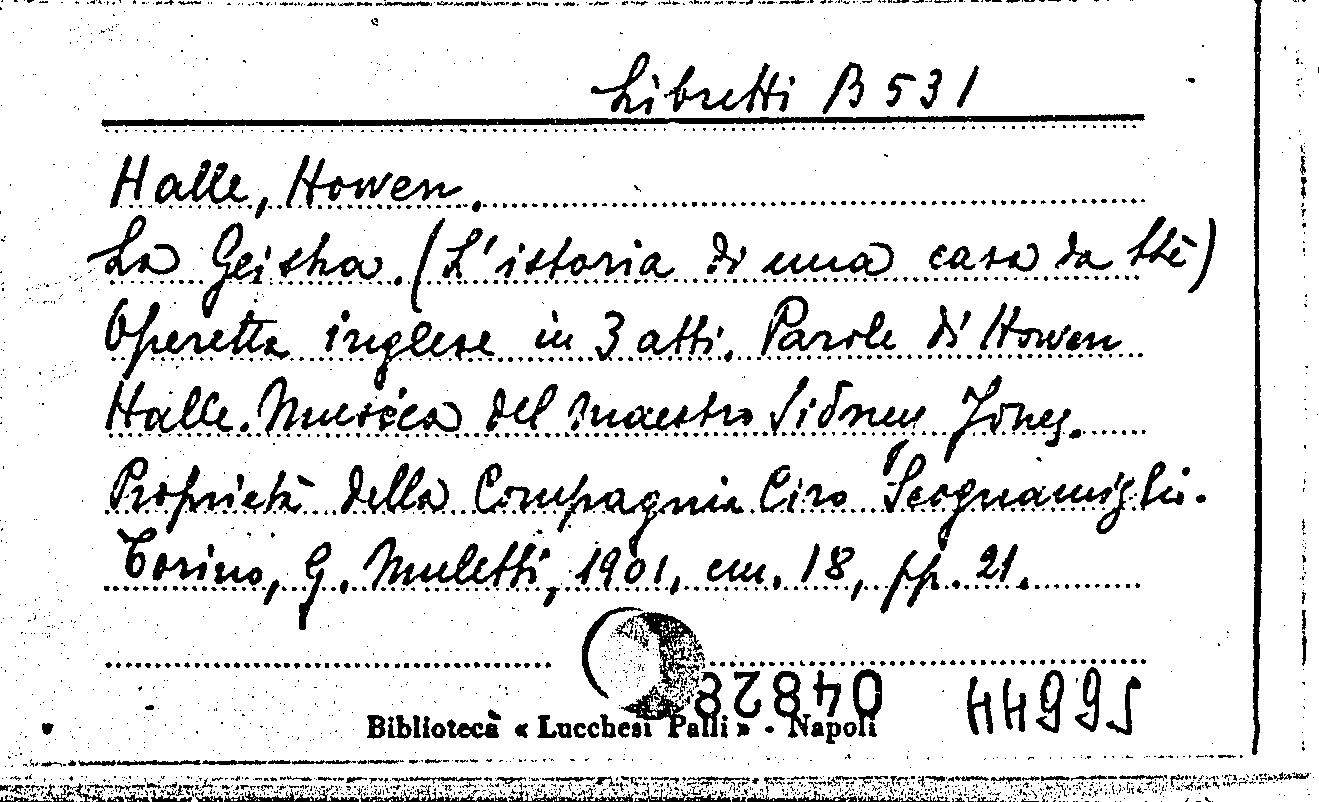 Libretti B 531
Halle, Howen.
La Geisha. (L'istoria di una casa da thè)
Operetta inglese in 3 atti. Parole di Howen
Halle. Musica del maestro Sidney Jones.
Proprietà della Compagnia Ciro Scognamiglio.
Torino, G. Muletti, 1901, cm. 18, pp. 21.
04828
Biblioteca « Lucchesi Palli » - Napoli